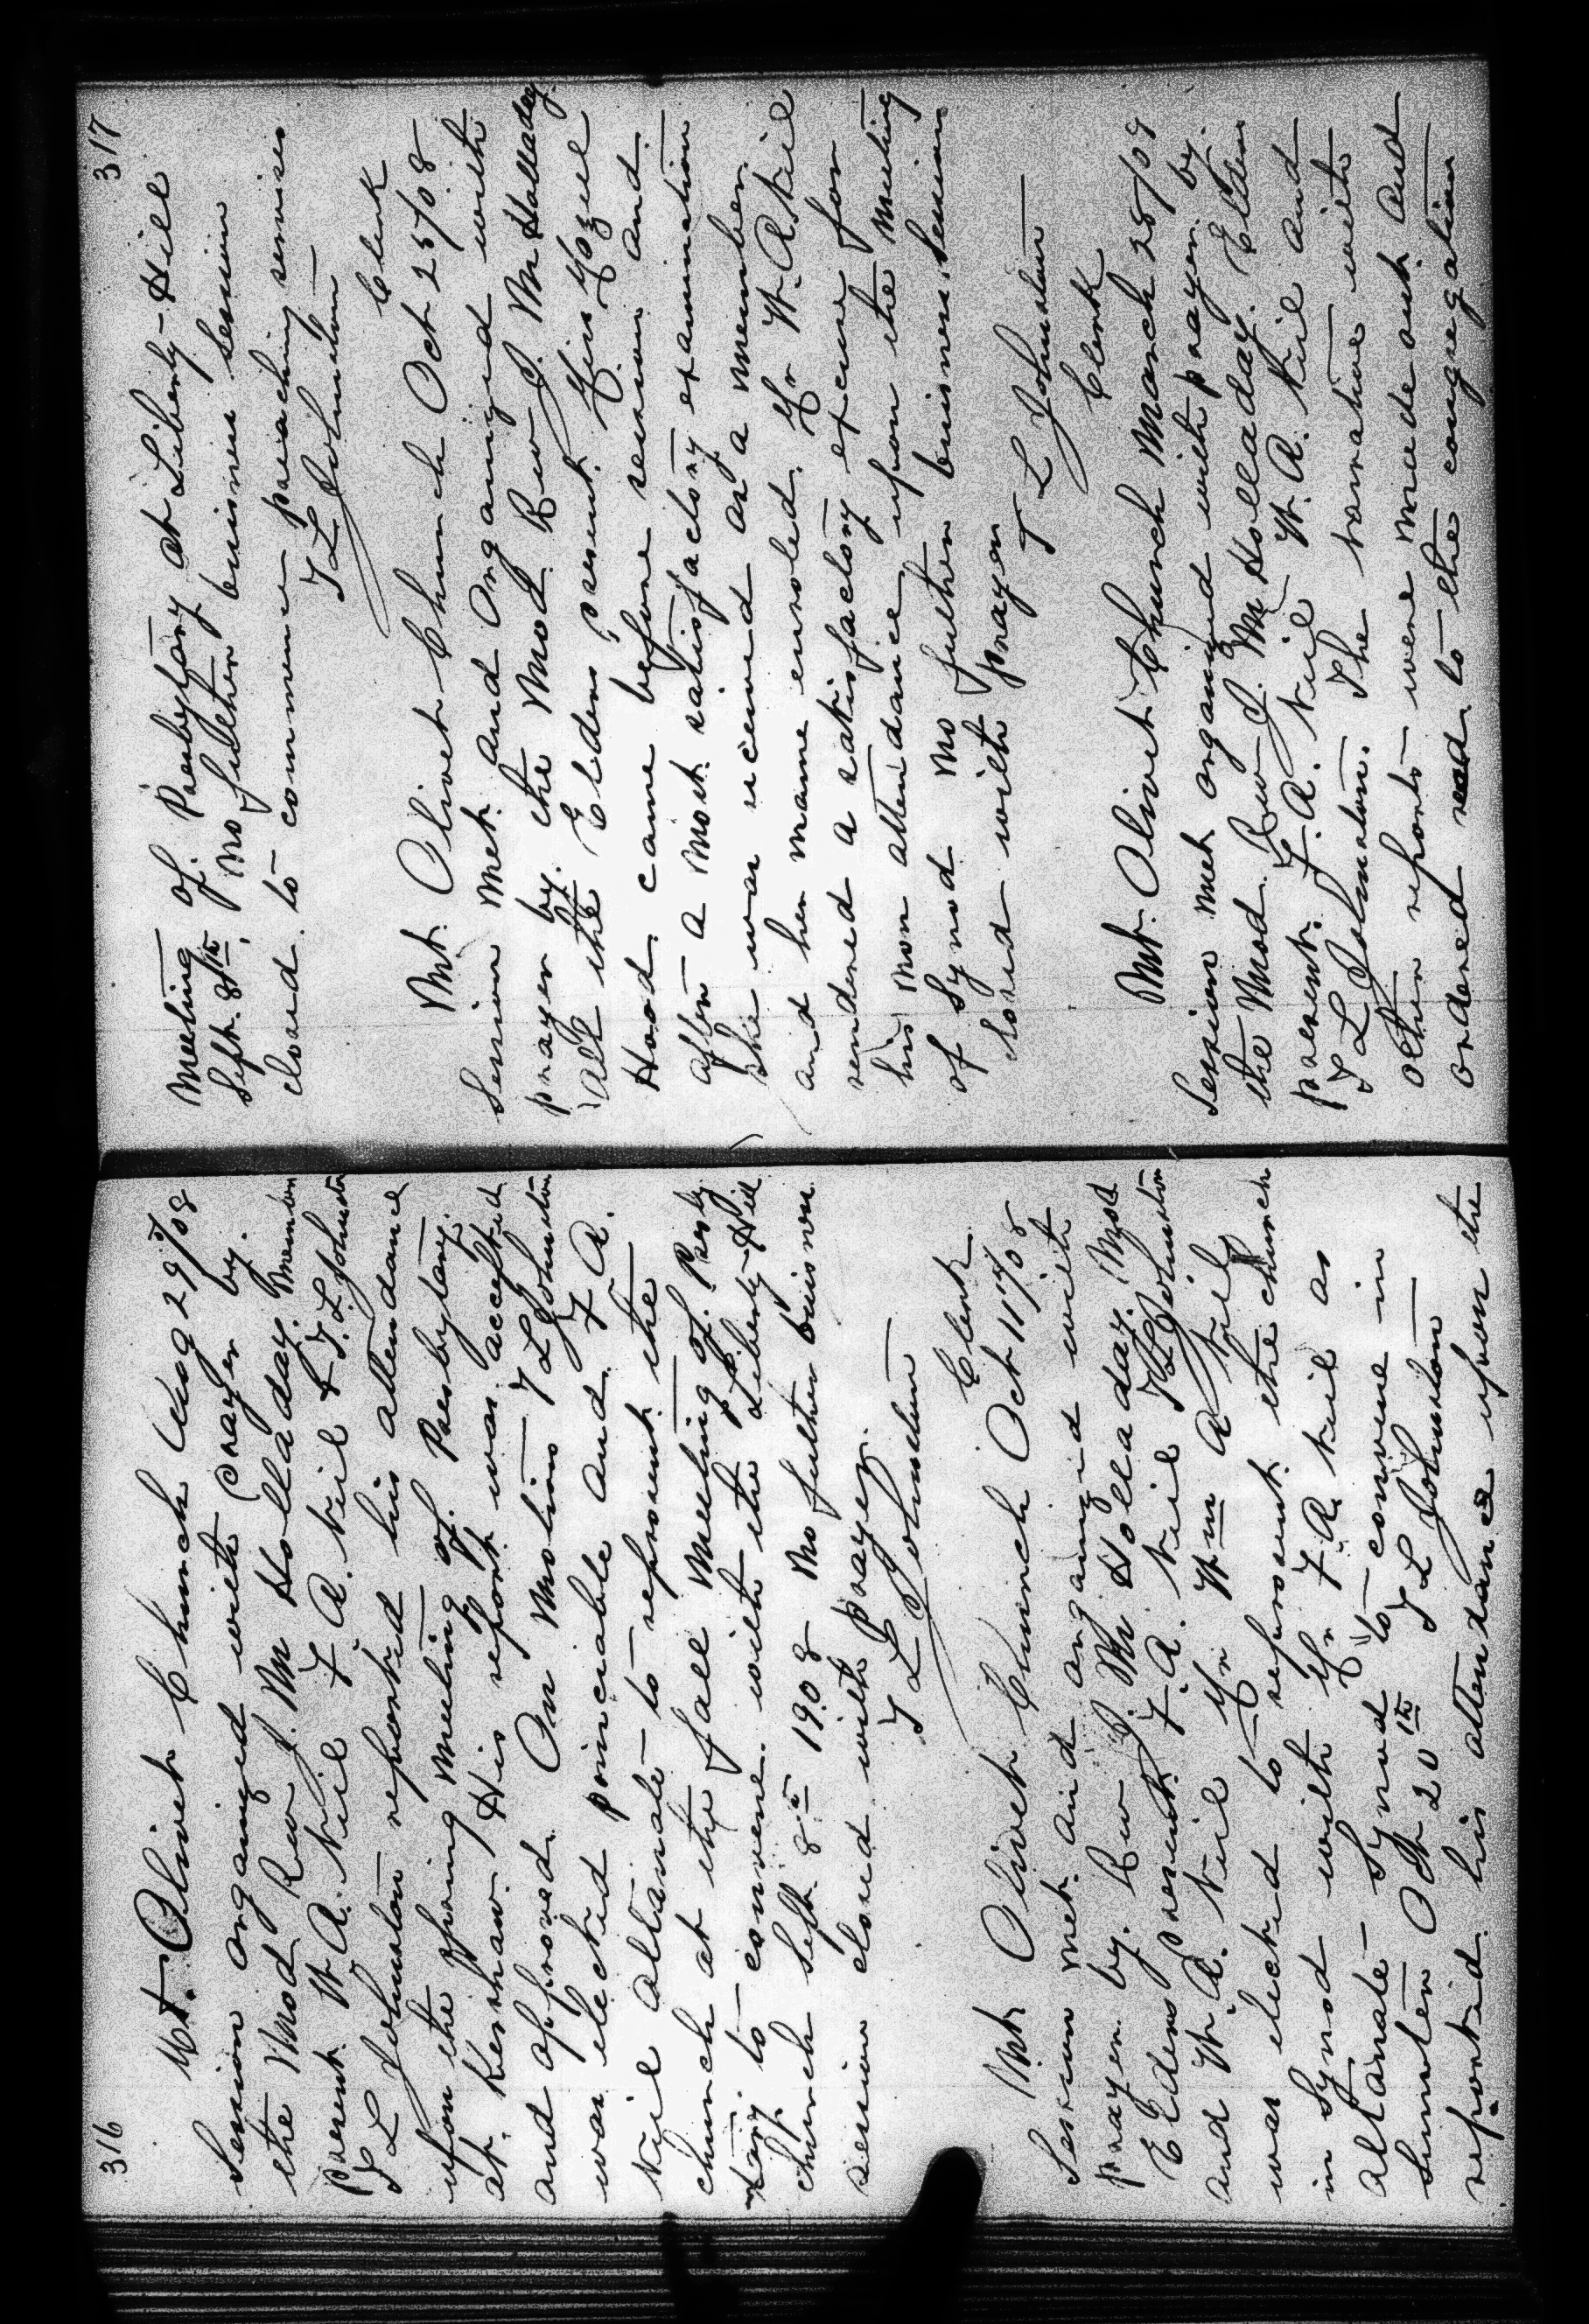 316
Mt. Olivet Church Aug 29/08
Session organized with prayer by.
the Mod Rev J. M Holladay. Members
present W. A. Neil F A. Neil & T. L Johnston
T L Johnston reported his attendance
upon the spring meeting of. Presbytary.
at. Kershaw. His report was accepted
and approved. On motion T L Johnston
was elected princiable and. F A.
Neil altanate to represent the
church at the fall meeting of. Presby
tary. to convene. with the Liberty-Hill
church Sept. 8th 1908 No futher buisness
session closed with prayer.
T L Johnston
Clerk
Mt Olivet Church Oct 11th/08
Session met. and organized with
prayer by. Rev J. M Holladay. Mod
Elders present. F. A. Neil T L Johnston
and W. A. Neil Mr Wm A Neil
was elected to represent the church
in Synod with Mr F. A. Neil as
altanate - Synod to convene in
Sumter Oct 20th T L Johnston
reported his attendance upon the
317
meeting of. Presbytary at Liberty-Hill
Sept. 8th, No futher buisness session
closed to commence preaching services
T L Johnston
Clerk
Mt. Olivet Church Oct 25/08
Session met. and Organized with
prayer by. the Mod. Rev J. M Holladay.
All the Elders present. Miss Mozelle
Hood. came before session and.
after a most satisfactory examination
she was received as a member
and her name enroled. Mr W. A Neil
rendered a satisfactory excuse for
his non attendance upon the meeting
of Synod No futher buisness, Session
closed with prayer
T L Johnston
Clerk
Mt. Olivet Church March 28/09
Session met organized with prayer by.
the Mod. Rev J. M Holladay. Elders
present. F. A. Neil W. A. Neil and
T L Johnston. The narative with
other reports were made out and
ordered read to the congregation